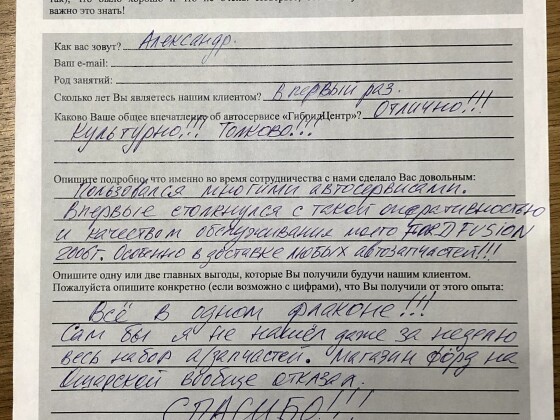 важно это знать!
Как вас зовут? Александр.
Ваш e-mail:
Род занятий:
Сколько лет Вы являетесь нашим клиентом? Впервый раз.
Каково Ваше общее впечатление об автосервисе «ГибридЦентр»? Отлично!!!
Культурно!!! Толково!!!
Опишите подробно, что именно во время сотрудничества с нами сделало Вас довольным:
Пользовался многими автосервисами.
Впервые столкнулся с такой оперативностью
и качеством обслуживания моего FORD FUSION
2006г. Особенно в доставке любых автозапчастей!!!
Опишите одну или две главных выгоды, которые Вы получили будучи нашим клиентом.
Пожалуйста опишите конкретно (если возможно с цифрами), что Вы получили от этого опыта:
Всё в одном флаконе!!!
Сам бы я не нашёл даже за неделю
весь набор а/запчастей. Магазин форд на
вообще отказал.
СПАСИБО!!!